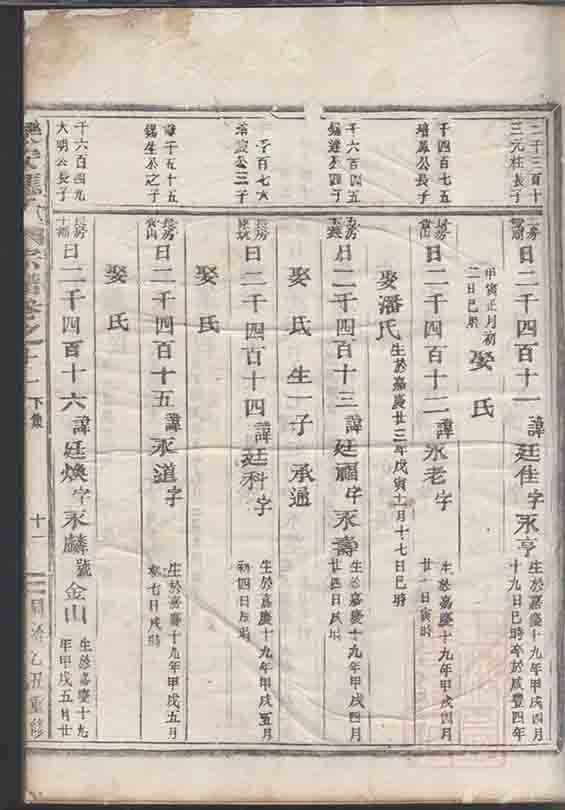 二千三百十
三元柱長子
日二千四百十一諱廷佳字永亨
生於嘉慶十九年甲戌四月
十九日巳時卒於咸豐四年
甲寅正月初
二日巳時
娶氏
千四百七五
公長子
日二千四百十二諱永老字
生於嘉慶十九年甲戌四月
廿一日寅時
娶潘氏
生於嘉慶廿三年戊寅十一月十七日巳時
千六百四五
四子
日二千四百十三諱廷福字永壽
生於嘉慶十九年甲戌四月
廿四日辰時
娶氏生一子承通
千百七六
公三子
長房
日二千四百十四諱廷科字
生於嘉慶十九年甲戌五月
初四日辰時
娶氏
千五十五
之子
長房
日二千四百十五諱永道字
生於嘉慶十九年甲戌五月
初七日戌時
娶氏
千六百四九
大明公長子
長房
日二千四百十六諱廷煥字永麟號金山
生於嘉慶十九
年甲戌五月廿
宗譜卷之十一下集
十一
同治乙丑重修